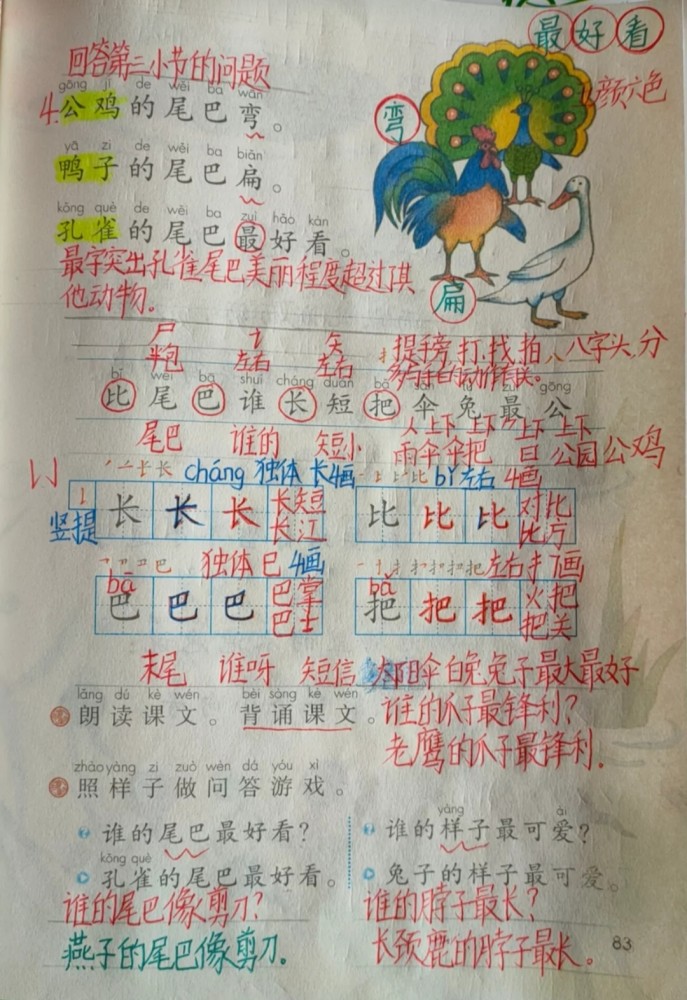 最好看
回答第三小节的问题
gōng jī de wěi ba wān
4.公鸡的尾巴弯。
弯
颜六色
yā zi de wěi ba biǎn
鸭子的尾巴扁。
kǒng què de wěi ba zuì hǎo kàn
孔雀的尾巴最好看。
最字突出孔雀尾巴美丽程度超过其
他动物。
扁
尸 矢 扌提手旁 打、找、拍 八 八字头、分
半包 左右 左右
bǐ wěi bā shuí cháng duǎn bǎ sǎn tù zuì gōng
比尾巴谁长短把伞兔最公
人上下 上下 上下
尾巴 谁的 短小 雨伞 伞把 曰 公园 公鸡
cháng 独体 长 4画 bǐ 左右 4画
竖提 长 长 长 长短 长江
比 比 比 对比 比方
独体 巴 4画 左右 扌 7画
bā
巴 巴 巴 巴掌 巴士
bǎ
把 把 把 火把 把关
末尾 谁呀 短信 太阳伞 白兔 兔子 最大 最好
lǎng dú kè wén bèi sòng kè wén
朗读课文。背诵课文。
谁的爪子最锋利?
老鹰的爪子最锋利.
zhào yàng zi zuò wèn dá yóu xì
照样子做问答游戏。
谁的尾巴最好看?
kǒng què
孔雀的尾巴最好看。
谁的尾巴像剪刀?
燕子的尾巴像剪刀.
yàng ài
谁的样子最可爱?
兔子的样子最可爱。
谁的脖子最长?
长颈鹿的脖子最长。
83